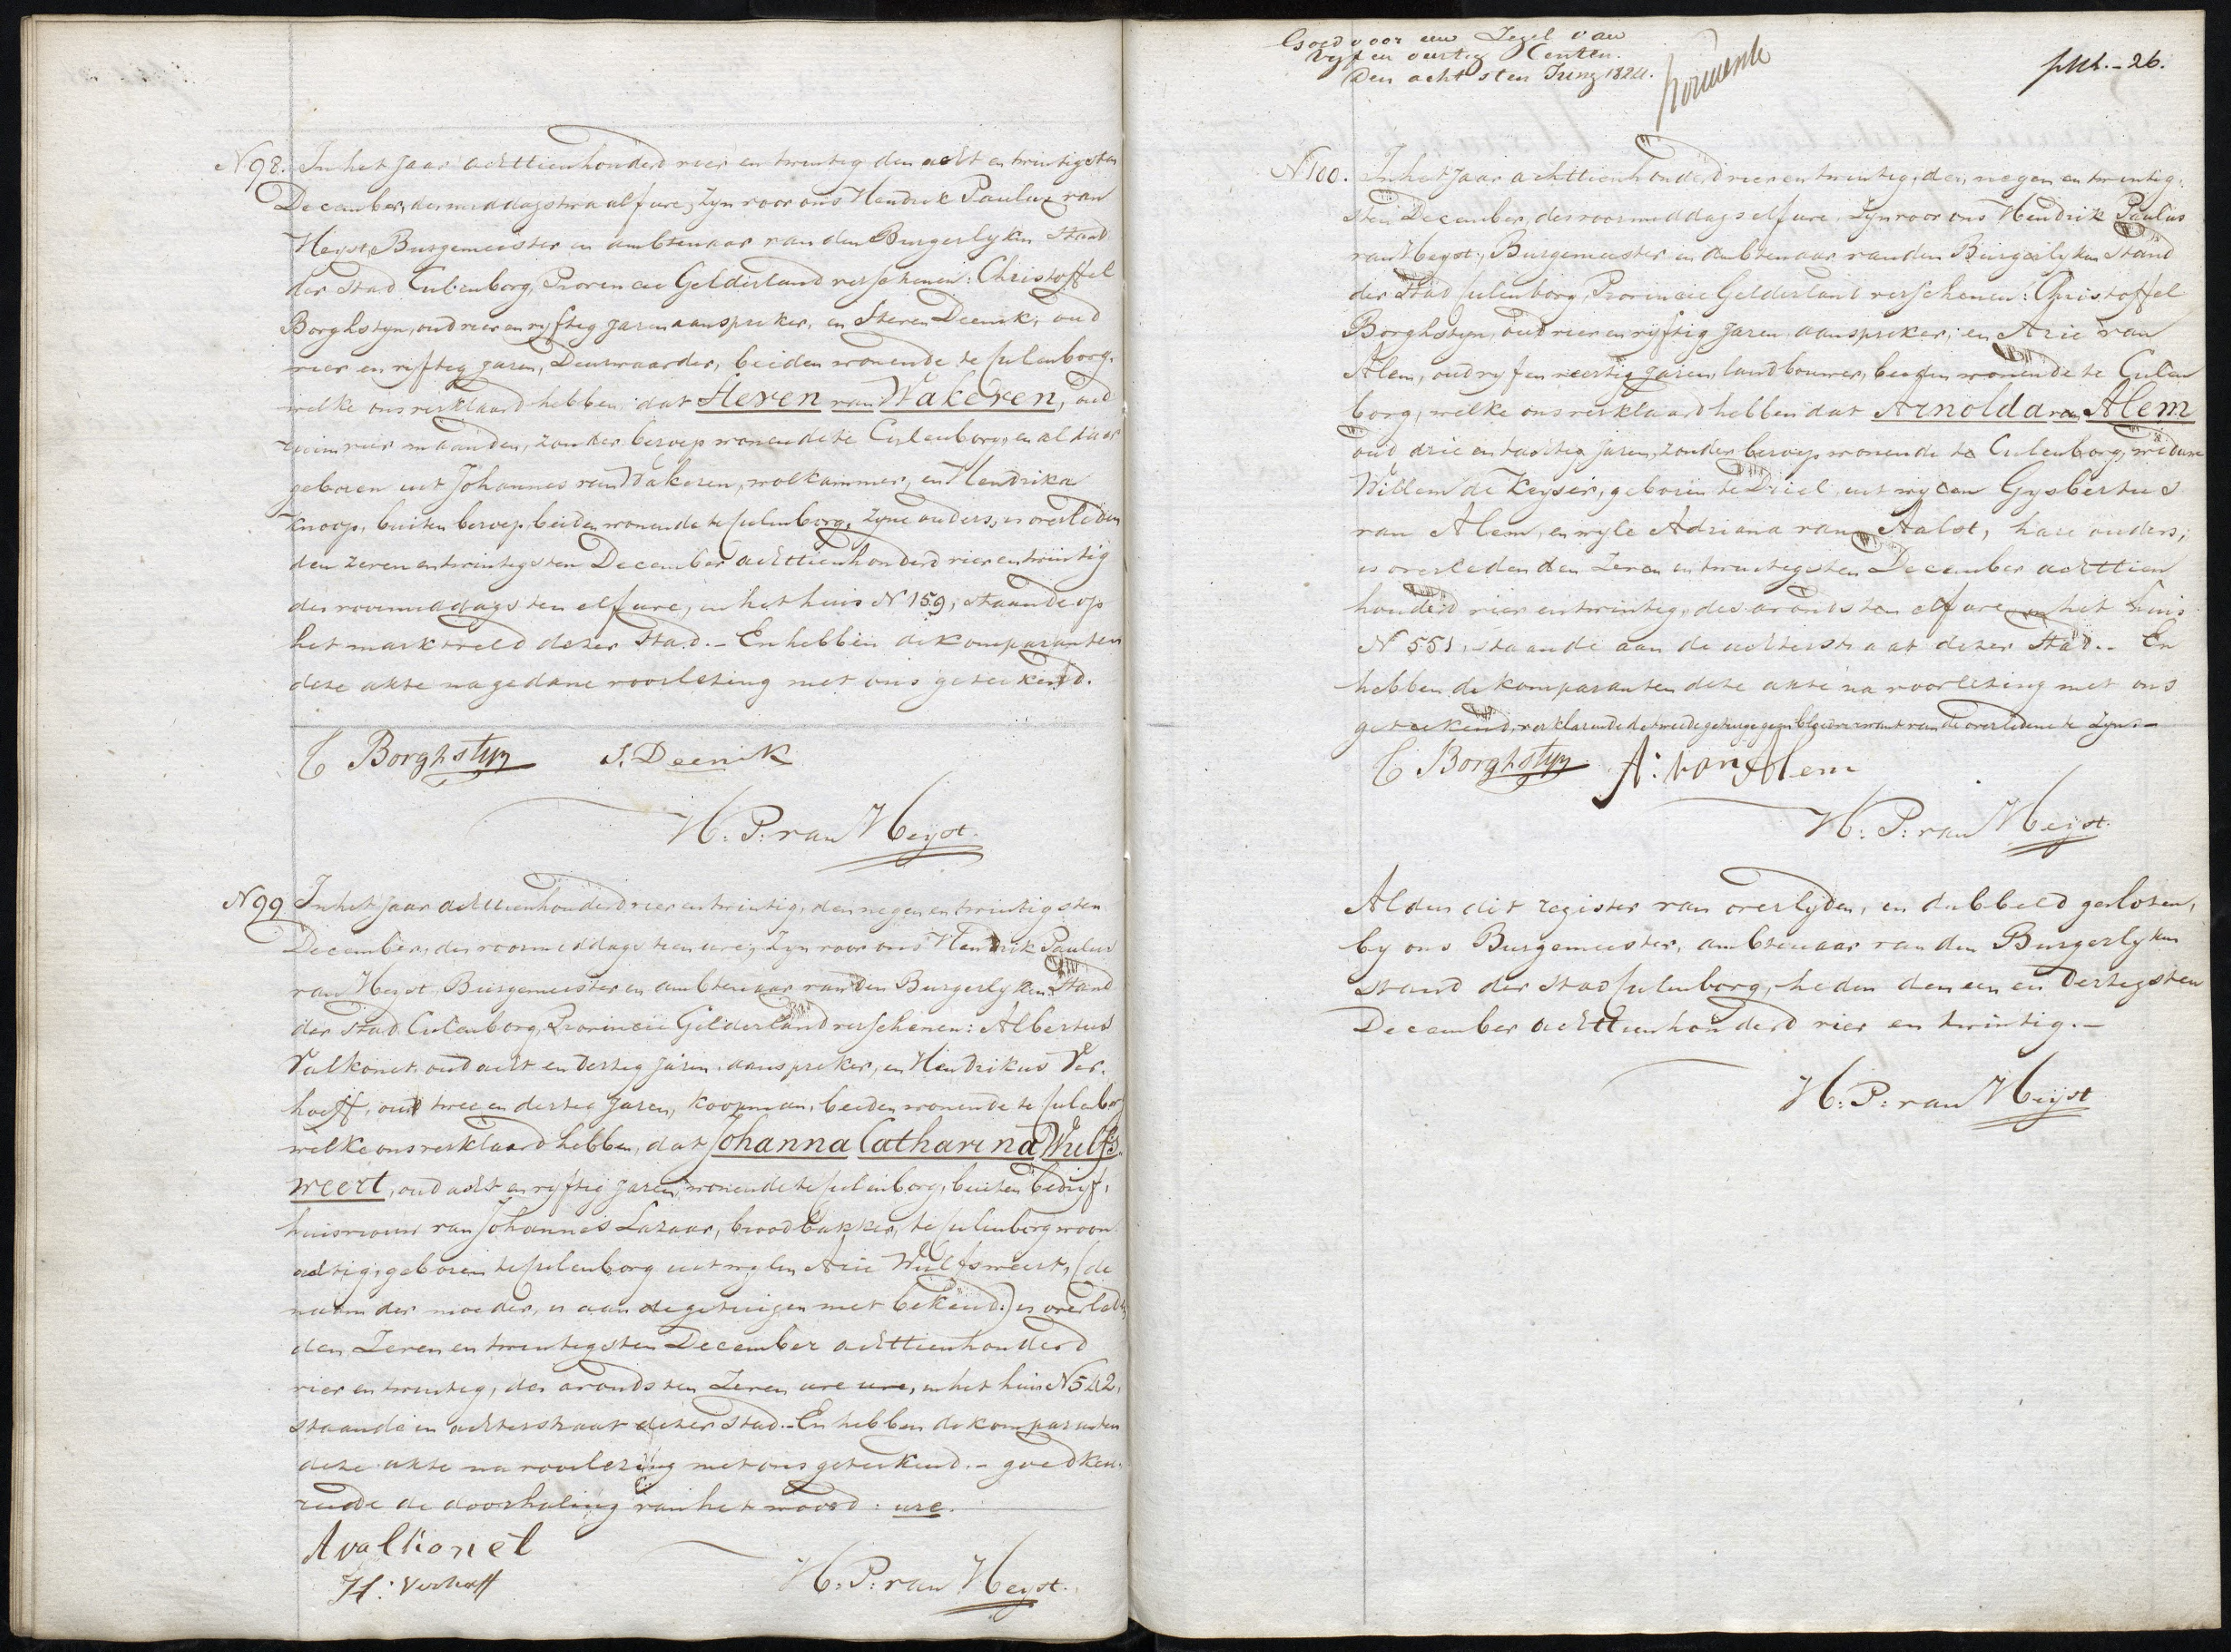 N 98. In het jaar achttienhonderd vier en twintig den acht en twintigsten
December, des middags twaalf ure, zyn voor ons Hendrik Paulus van
Heyst, Burgemeester en ambtenaar van den Burgerlyken Stand
der Stad Culenborg, Provincie Gelderland verschenen: Christoffel
Borghstyn, oud vier en vyftig jaren aanspreker, en Steven Deenik, oud
vier en vyftig jaren, Deurwaarder, beiden wonende te Culenborg.
welke ons verklaard hebben, dat Steven van Wakeren, oud
vier maanden, zonder beroep wonende te Culenborg, en aldaar
geboren uit Johannes van Wakeren, wolkammer, en Hendrika
Knoop, buiten beroep, beiden wonende te Culenborg, zyne ouders, is overleden
den zeven en twintigsten December achttienhonderd vier en twintig
des voormiddags ten elf ure, in het huis N 159, staande op
het marktveld dezer Stad. - En hebben de komparanten
deze akte na gedane voorlezing met ons geteekend.
C Borghstyn S. Deenik
H: P: van Heyst.
N 99 In het jaar achttienhonderd vier en twintig, den negen en twintigsten
December, des voormiddags tien ure, zyn voor ons Hendrik Paulus
van Heyst, Burgemeester en ambtenaar van den Burgerlyken Stand
der Stad Culenborg, Provincie Gelderland verschenen: Albertus
Valkonet, oud acht en dertig jaren, aanspreker, en Hendrikus Ver-
hoeff, oud twee en dertig jaren, koopman, beiden wonende te Culenborg
welke ons verklaard hebben, dat Johanna Catharina Wulfs-
weert, oud acht en vyftig jaren, wonende te Culenborg, buiten bedryf,
huisvrouw van Johannes Lazaar, broodbakker, te Culenborg woon-
achtig, geboren te Culenborg uit wylen Arie Wulfsweert, (de
naam der moeder, is aan de getuigen niet bekend.) is overleden
den Zeven en twintigsten December achttienhonderd
vier en twintig, des avonds ten Zeven ure ure, in het huis N 542,
staande in achterstraat dezer Stad. - En hebben de komparanten
deze akte na voorlezing met ons geteekend. - goedkeu-
rende de doorhaling van het woord: ure.
A valkonet
H: Verhoeff
H: P: van Heyst.
Goed voor een Zegel van
Vyf en veertig Centen.
Den achtsten Juny 1824.
26.
N 100. In het jaar achttienhonderd vier en twintig, den negen en twintig-
sten December, des voormiddags elf ure, zyn voor ons Hendrik Paulus
van Heyst, Burgemeester en ambtenaar van den Burgerlyken Stand
der Stad Culenborg, Provincie Gelderland verschenen: Christoffel
Borghstyn, oud vier en vyftig jaren aanspreker, en Arie van
Alem, oud vyf en veertig jaren, landbouwer, beiden wonende te Culen
borg, welke ons verklaard hebben dat Arnolda van Alem
oud drie en tachtig jaren, zonder beroep wonende te Culenborg, weduwe
Willem de Keyser, geboren te Driel, uit wylen Gysbertus
van Alem, en wyle Adriana van Aalst, hare ouders;
is overleden den Zeven en twintigsten December achttien
honderd vier en twintig, des avonds ten elf ure in het huis
N 551, staande aan de achterstraat dezer Stad. - En
hebben de komparanten deze akte na voorlezing met ons
geteekend, verklarende de tweede getuige geen bloedverwant van de overledene te Zyn. -
C Borghstyn A: van Alem
H: P: van Heyst.
Aldus dit register van overlyden, en dubbeld gesloten,
by ons Burgemeester, ambtenaar van den Burgerlyken
stand der stad Culenborg, heden den een en dertigsten
December achttienhonderd vier en twintig. -
H: P: van Heyst